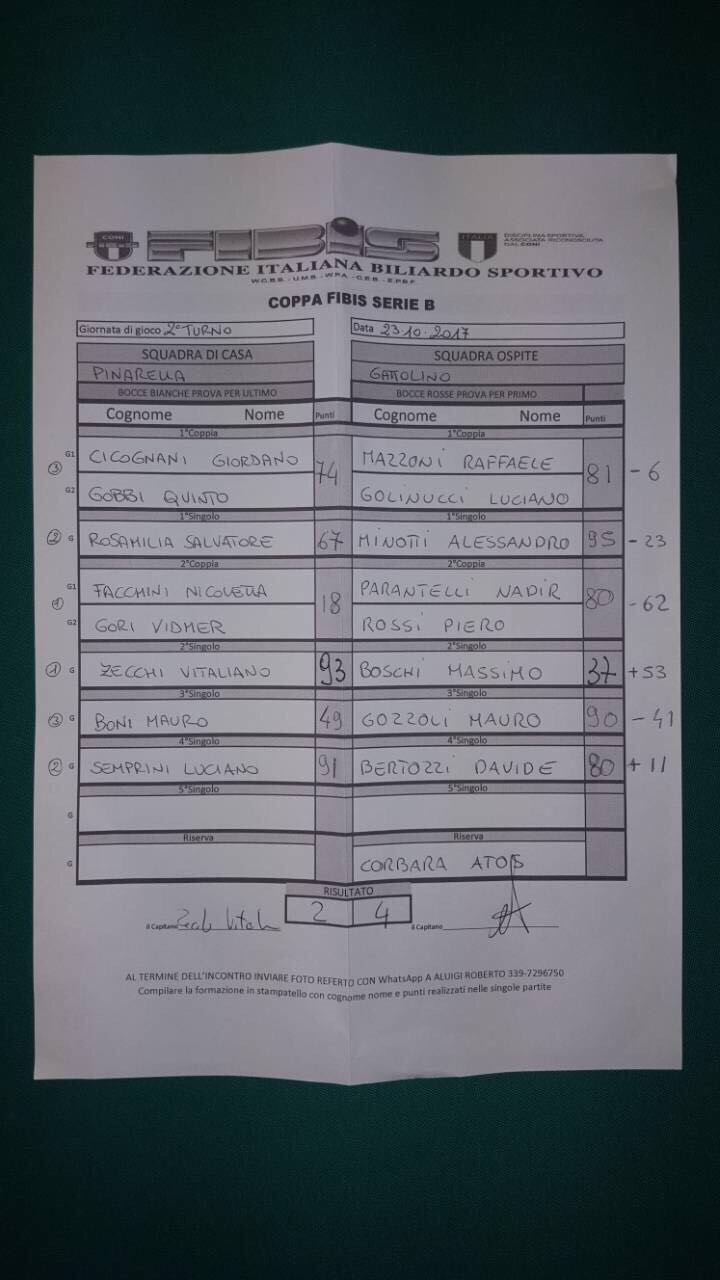 CONI FIBIS ITALIA DISCIPLINA SPORTIVA
ASSOCIATA RICONOSCIUTA
DAL CONI
FEDERAZIONE ITALIANA BILIARDO SPORTIVO
W.C.B.S. - U.M.B. - W.P.A. - C.E.B. - E.P.B.F.
COPPA FIBIS SERIE B
Giornata di gioco 2° TURNO Data 23 10.2017
SQUADRA DI CASA SQUADRA OSPITE
PINARELLA GATTOLINO
BOCCE BIANCHE PROVA PER ULTIMO BOCCE ROSSE PROVA PER PRIMO
Cognome Nome Punti Cognome Nome Punti
1°Coppia 1°Coppia
3 G1 CICOGNANI GIORDANO 74 MAZZONI RAFFAELE 81 - 6
G2 GOBBI QUINTO GOLINUCCI LUCIANO
1°Singolo 1°Singolo
2 G ROSAMILIA SALVATORE 67 MINOTTI ALESSANDRO 95 - 23
2°Coppia 2°Coppia
1 G1 FACCHINI NICOLETTA 18 PARANTELLI NADIR 80 - 62
G2 GORI VIDMER ROSSI PIERO
2°Singolo 2°Singolo
1 G ZECCHI VITALIANO 93 BOSCHI MASSIMO 37 +53
3°Singolo 3°Singolo
3 G BONI MAURO 49 GOZZOLI MAURO 90 - 41
4°Singolo 4°Singolo
2 G SEMPRINI LUCIANO 91 BERTOZZI DAVIDE 80 + 11
5°Singolo 5°Singolo
G
Riserva Riserva
G CORBARA ATOS
RISULTATO
il Capitano 2 4 il Capitano
AL TERMINE DELL'INCONTRO INVIARE FOTO REFERTO CON WhatsApp A ALUIGI ROBERTO 339-7296750
Compilare la formazione in stampatello con cognome nome e punti realizzati nelle singole partite